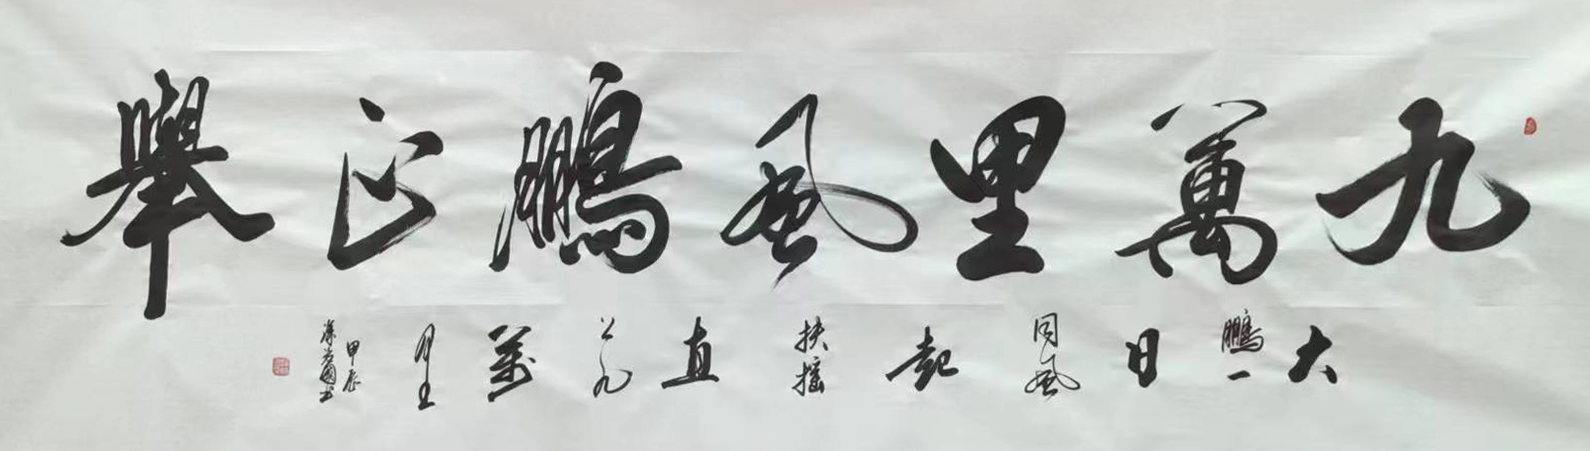 九萬里風鵬正舉
大鵬一日同風起扶摇直上九萬里
甲辰